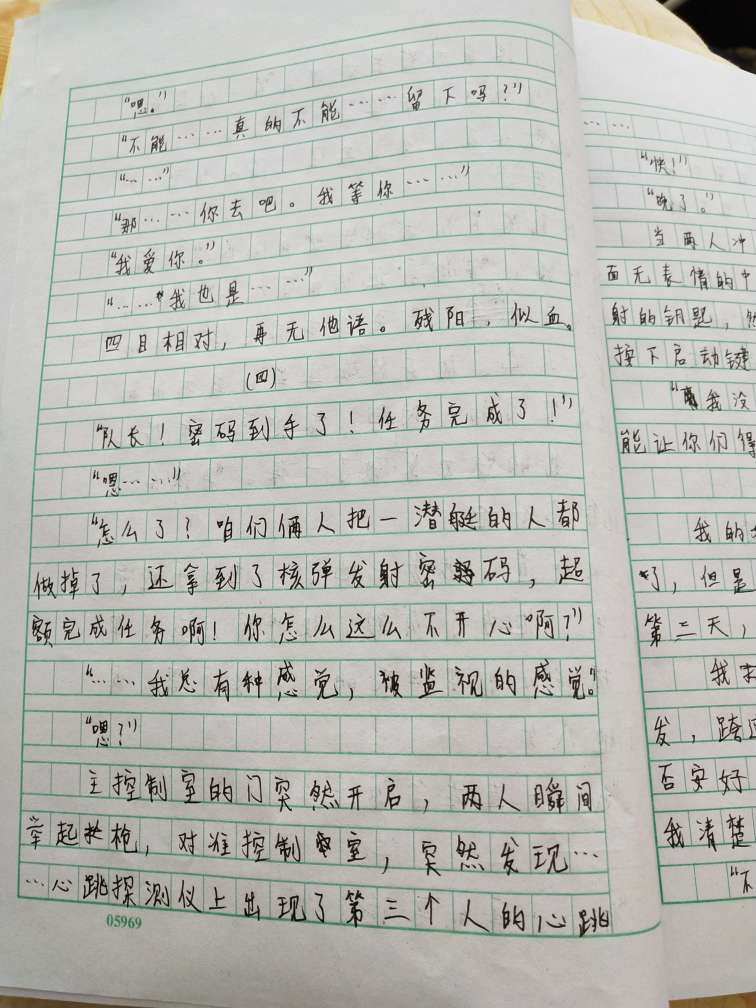 “嗯。”
“不能……真的不能……留下吗？”
“……”
“那……你去吧。我等你……”
“我爱你。”
“……我也是……”
四目相对，再无他语。残阳，似血。
（四）
“队长！密码到手了！任务完成了！”
“嗯……”
“怎么了？咱们俩人把一潜艇的人都
做掉了，还拿到了核弹发射密码，超
额完成任务啊！你怎么这么不开心啊？”
“……我总有种感觉，被监视的感觉。”
“嗯？”
主控制室的门突然开启，两人瞬间
举起枪，对准控制室，突然发现…
…心跳探测仪上出现了第三个人的心跳
05969
……
“快！”
“晚了。”
当两人冲
面无表情的中
射的钥匙，
按下启动键
“我没
能让你们得
我的
了，但是
第三天，
我
发，跨
否安好
我清楚
“不